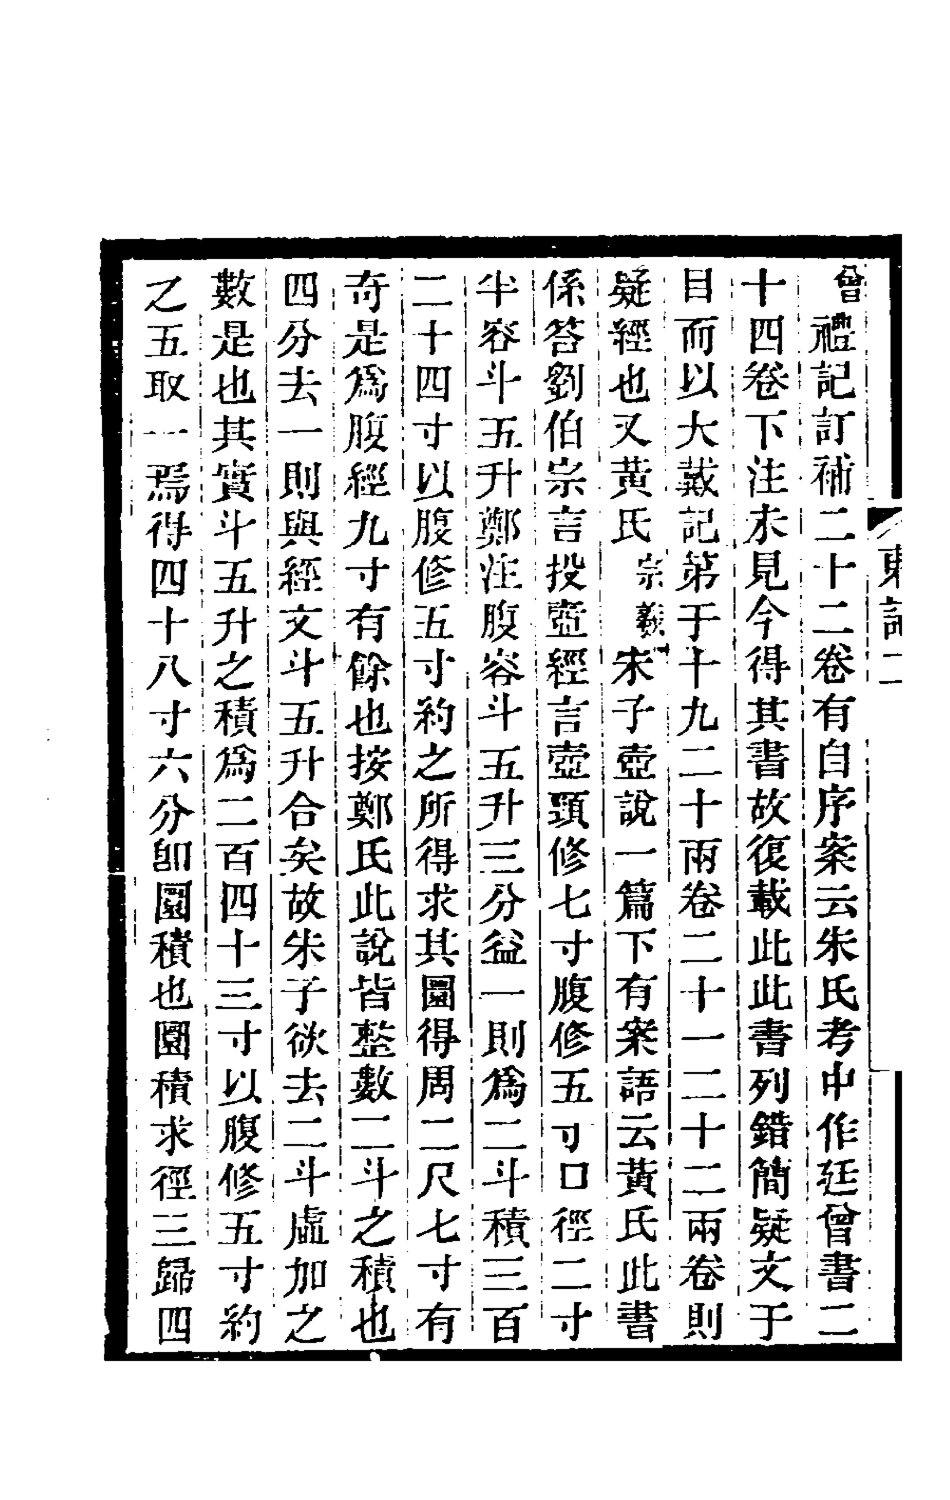 東記二
曾禮記訂補二十二卷有自序案云朱氏考中作廷曾書二
十四卷下注未見今得其書故復載此此書列錯簡疑文于
目而以大戴記第于十九二十兩卷二十一二十二兩卷則
疑經也又黃氏宗羲朱子壺說一篇下有案語云黃氏此書
係答劉伯宗言投壺經言壺頸修七寸腹修五寸口徑二寸
半容斗五升鄭注腹容斗五升三分益一則爲二斗積三百
二十四寸以腹修五寸約之所得求其圜得周二尺七寸有
奇是爲腹經九寸有餘也按鄭氏此說皆整數二斗之積也
四分去一則與經文斗五升合矣故朱子欲去二斗虛加之
數是也其實斗五升之積爲二百四十三寸以腹修五寸約
之五取一焉得四十八寸六分卽圜積也圜積求徑三歸四